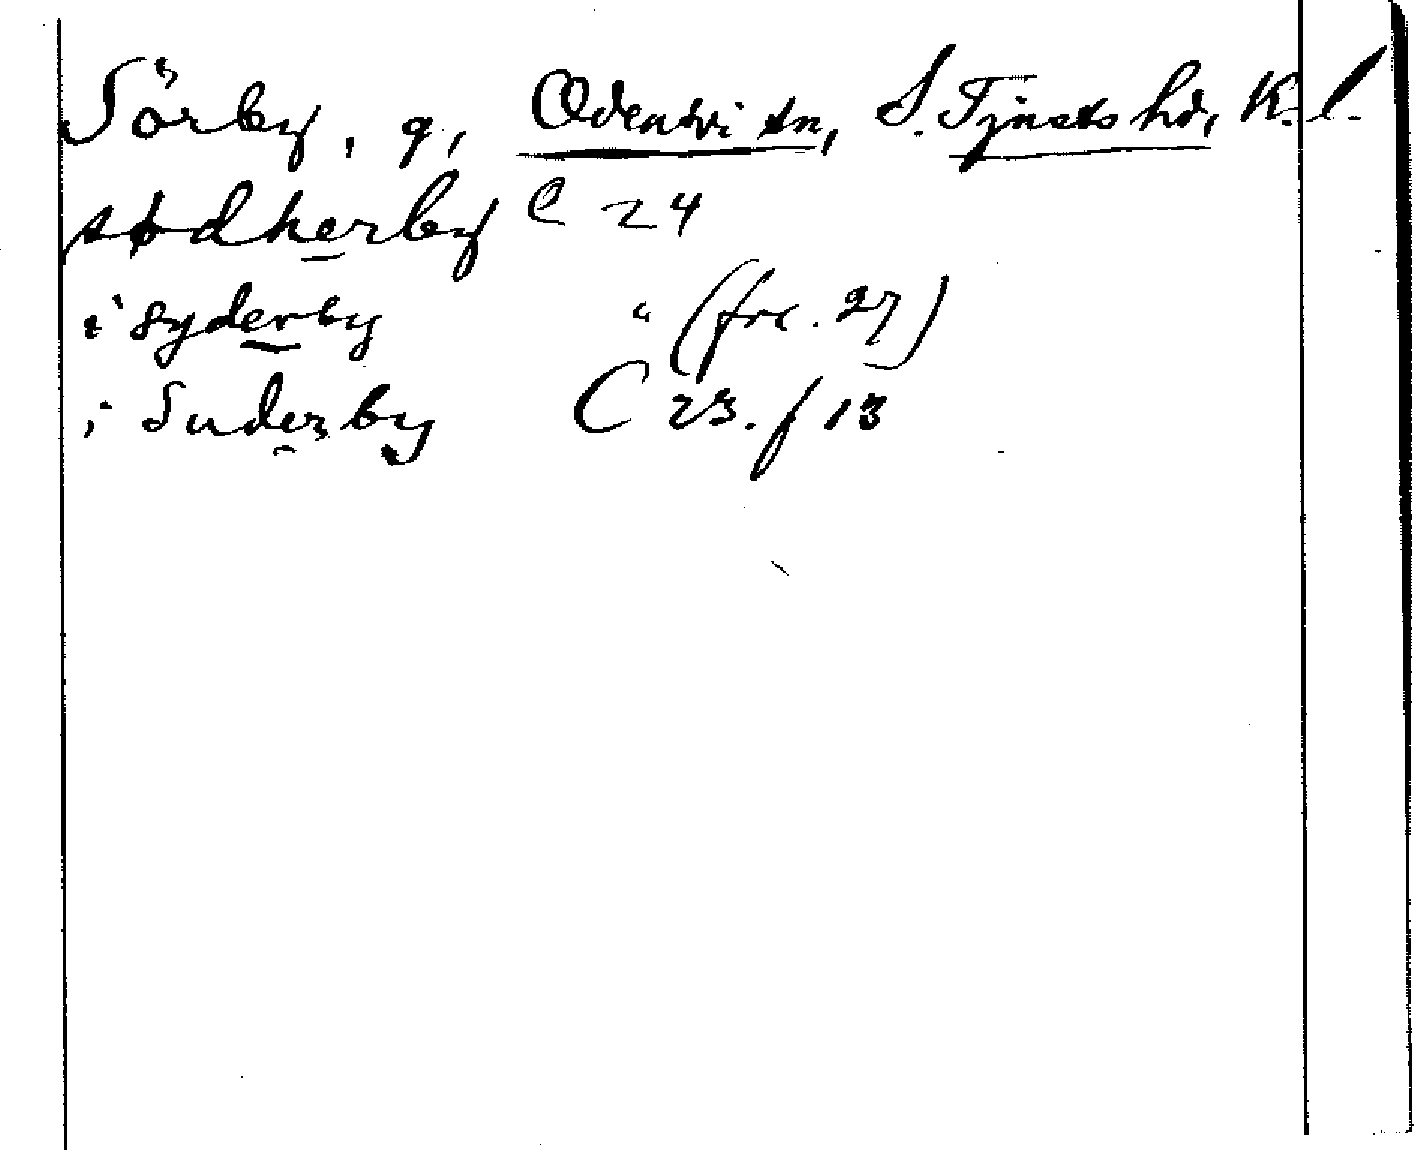 Sörby, g, Odensvi sn, S. Tjusts hd, K. l.
sødherby C 24
i syderby " (frc. 27)
i Suderby C 23. f 13